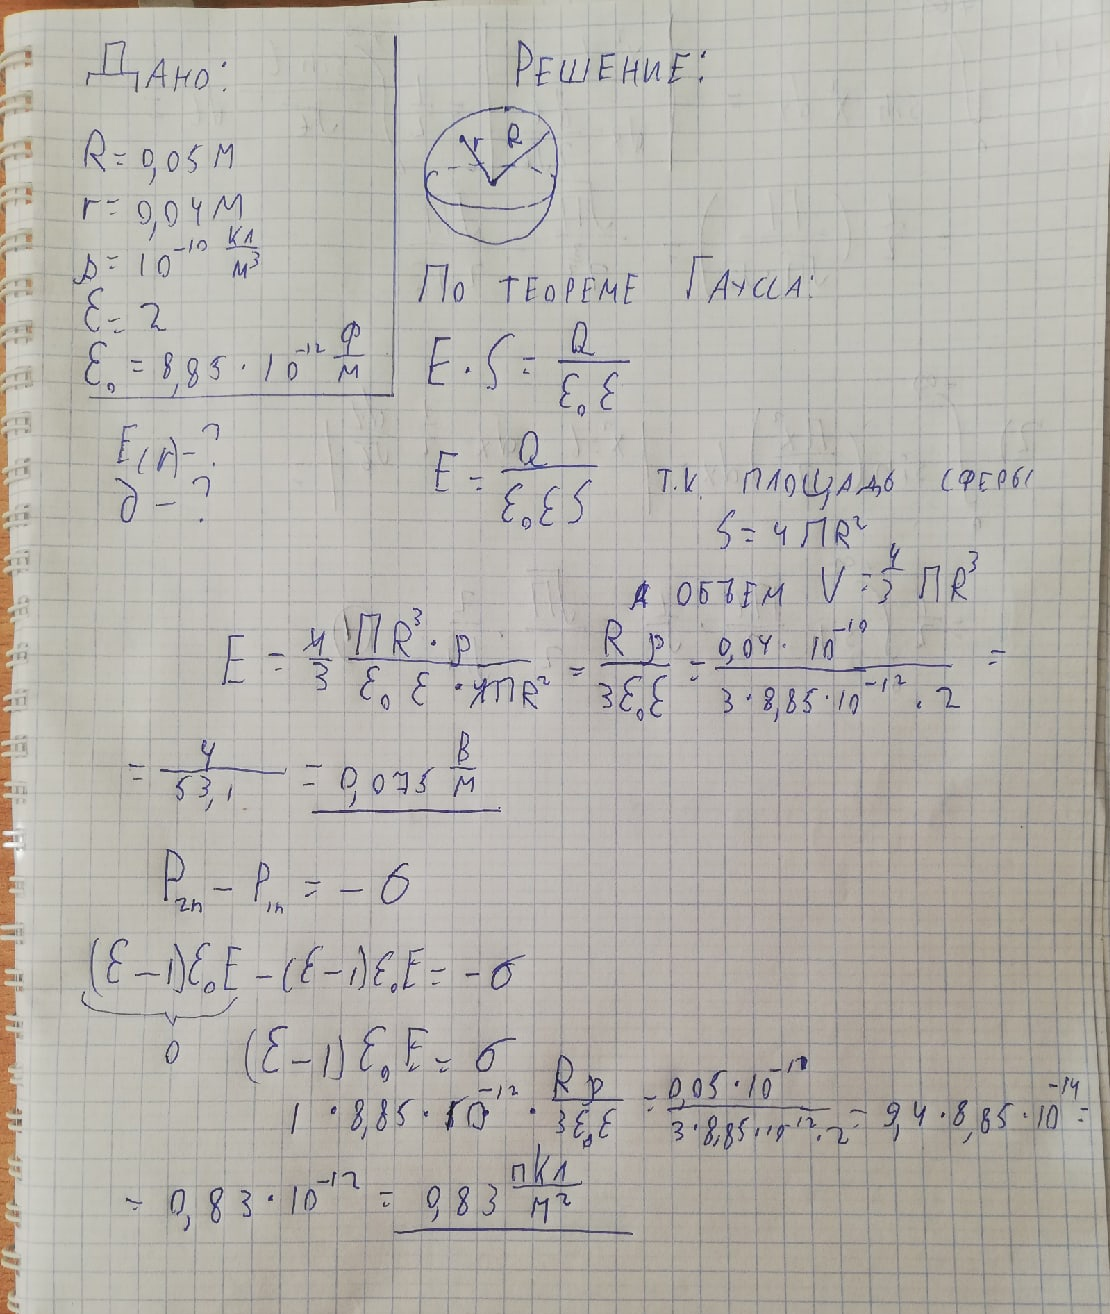 Дано:
R = 0,05 м
r = 0,04 м
ρ = 10⁻¹⁰ Кл/м³
ε = 2
ε₀ = 8,85 · 10⁻¹² Ф/м
E(r) - ?
∂ - ?
Решение:
r R
По теореме Гаусса:
E · S = Q / ε₀ ε
E = Q / ε₀ ε S т.к. площадь сферы
S = 4 П R²
а объем V = 4/3 П R³
E = 4/3 П R³ · ρ / ε₀ ε · 4 П R² = R ρ / 3 ε₀ ε = 0,04 · 10⁻¹⁰ / 3 · 8,85 · 10⁻¹² · 2 =
= 4 / 53,1 = 0,075 В/м
P₂ₙ - P₁ₙ = - σ
(ε - 1) ε₀ E - (ε - 1) ε₀ E = - σ
0 (ε - 1) ε₀ E = σ
1 · 8,85 · 10⁻¹² · R ρ / 3 ε₀ ε = 0,05 · 10⁻¹⁰ / 3 · 8,85 · 10⁻¹² · 2 = 9,4 · 8,85 · 10⁻¹⁴ =
= 0,83 · 10⁻¹² = 0,83 пКл/м²